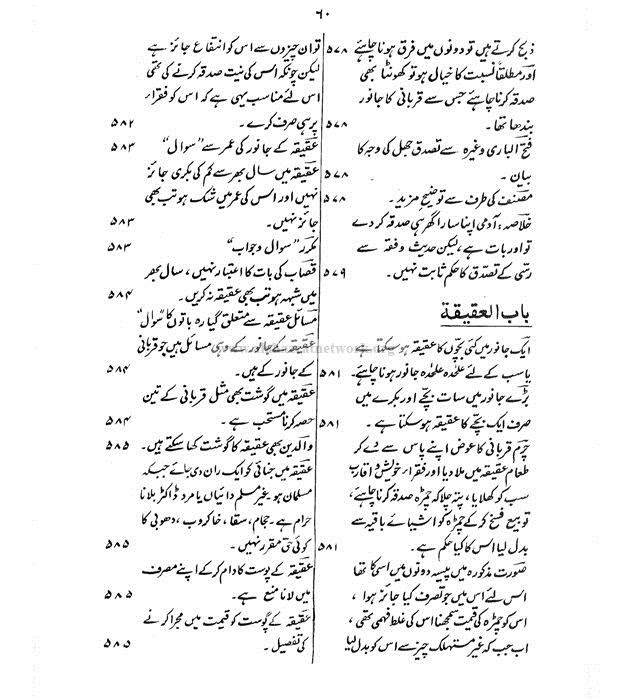 ۶۰
ذبح کرتے ہیں تو دونوں میں فرق ہونا چاہئے ۵۷۸
اور مطلقاً نسبت کا خیال ہو تو کھونٹا بھی
صدقہ کرنا چاہئے جس سے قربانی کا جانور
بندھا تھا۔ ۵۷۸
فتح الباری وغیرہ سے تصدق جھل کی وجہ کا
بیان۔ ۵۷۸
مصنف کی طرف سے توضیح مزید۔ ۵۷۸
خلاصہ: آدمی اپنا سارا گھر ہی صدقہ کر دے
تو اور بات ہے، لیکن حدیث و فقہ سے
رسّی کے تصدق کا حکم ثابت نہیں۔ ۵۷۹
باب العقیقة
ایک جانور میں کئی بچّوں کا عقیقہ ہو سکتا ہے
یا سب کے لئے علٰحدہ علٰحدہ جانور ہونا چاہئے۔ ۵۸۱
بڑے جانور میں سات بچّے اور بکرے میں
صرف ایک بچّے کا عقیقہ ہو سکتا ہے۔ ۵۸۱
چرم قربانی کا عوض اپنے پاس سے دے کر
طعام عقیقہ میں ملا دیا اور فقراء خویش و اقارب
سب کو کھلایا، پتہ چلا کہ چمڑہ صدقہ کرنا چاہئے،
تو بیع فسخ کر کے چمڑہ کو اشیائے باقیہ سے
بدل لیا اس کا کیا حکم ہے۔ ۵۸۱
صورت مذکورہ میں پیسہ دونوں میں اسی کا تھا
اس لئے اس میں جو تصرف کیا جائز ہوا،
اس کو چمڑہ کی قیمت سمجھنا اس کی غلط فہمی تھی،
اب جب کہ غیر مستہلک چیز سے اس کو بدل لیا
تو ان چیزوں سے اس کو انتفاع جائز ہے
لیکن چونکہ اس کی نیت صدقہ کرنے کی تھی
اس لئے مناسب یہی ہے کہ اس کو فقراء
پر ہی صرف کرے۔ ۵۸۲
عقیقہ کے جانور کی عمر سے "سوال" ۵۸۳
عقیقہ میں سال بھر سے کم کی بکری جائز
نہیں اور اس کی عمر میں شک ہو تب بھی
جائز نہیں۔ ۵۸۳
مکرر "سوال وجواب" ۵۸۳
قصاب کی بات کا اعتبار نہیں، سال بھر
میں شبہہ ہو تب بھی عقیقہ نہ کریں۔ ۵۸۴
مسائل عقیقہ سے متعلق گیارہ باتوں کا "سوال"
عقیقہ کے جانور کے وہی مسائل ہیں جو قربانی
کے جانور کے ہیں۔ ۵۸۴
عقیقہ میں گوشت بھی مثل قربانی کے تین
حصہ کرنا مستحب ہے۔ ۵۸۴
والدین بھی عقیقہ کا گوشت کھا سکتے ہیں۔ ۵۸۵
عقیقہ میں جنائی کو ایک ران دی جائے جبکہ
مسلمان ہو، غیر مسلم دائیاں یا مرد ڈاکٹر بلانا
حرام ہے۔ حجام، سقا، خاکروب، دھوبی کا
کوئی حق مقرر نہیں۔ ۵۸۵
عقیقہ کے پوست کا دام کر کے اپنے مصرف
میں لانا منع ہے۔ ۵۸۵
عقیقہ کے گوشت کو قیمت میں مجرا کرنے
کی تفصیل۔ ۵۸۵